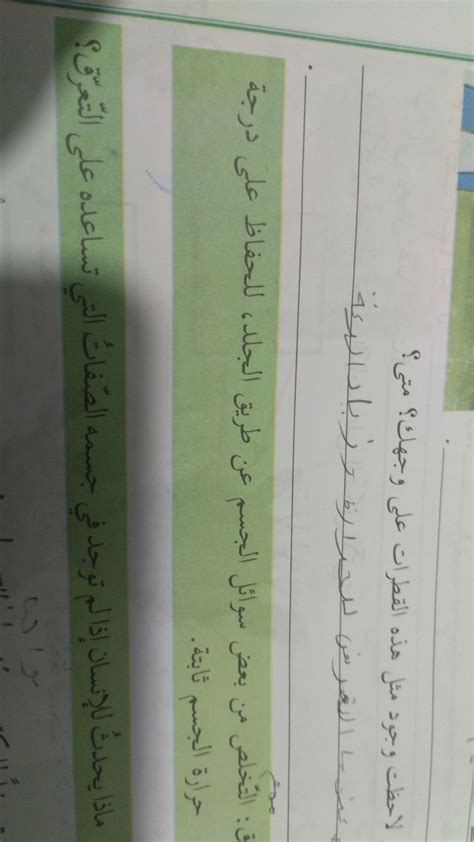 لاحظت وجود مثل هذه القطرات على وجهك؟ متى؟
التعرض للحرارة
ق: التخلص من بعض سوائل الجسم عن طريق الجلد، للحفاظ على درجة
حرارة الجسم ثابتة.
ماذا يحدثُ للإنسان إذا لم توجد في جسمه الصّفاتُ التي تساعده على التّعرّق؟